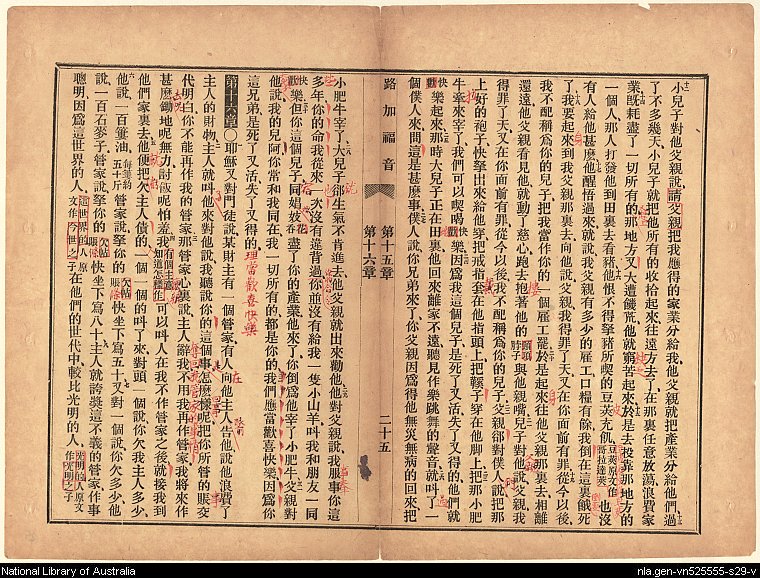 小兒子對他父親說請父親把我應得的家業分給我他父親就把產業分給他們過
了不多幾天小兒子就把他所有的收拾起來往遠方去了在那裏任意放蕩浪費家
業旣耗盡了一切所有的那地方又大遭饑荒他就窮苦起來於是去投靠那地方的
一個人那人打發他到田裏去看豬他恨不得拏豬所喫的豆莢充飢豆莢原文作哥拉達莢也沒
有人給他甚麼他醒悟過來就說我父親有多少的雇工口糧有餘我倒在這裏餓死
了我要起來到我父親那裏去向他說父親我得罪了天又在你面前有罪從今以後
我不配稱爲你的兒子把我當作你的一個雇工罷於是起來往他父親那裏去相離
還遠他父親看見他就動了慈心跑去抱著他的頸項與他親嘴兒子對他說父親我
得罪了天又在你面前有罪從今以後我不配稱爲你的兒子父親卻對僕人說把那
上好的袍子快拏出來給他穿把戒指套在他指頭上把鞵子穿在他脚上把那小肥
牛牽來宰了我們可以喫喝快樂因爲我這個兒子是死了又活失了又得的他們就
快樂起來那時大兒子正在田裏他回來離家不遠聽見作樂跳舞的聲音就叫了一
個僕人來問這是甚麼事僕人說你兄弟來了你父親因爲得他無災無病的回來把
路加福音 第十五章 第十六章 二十五
小肥牛宰了大兒子卻生氣不肯進去他父親就出來勸他他對父親說我服事你這
多年你的命我從來一次沒有違背過你並沒有給我一隻小山羊叫我和朋友一同
快樂但你這個兒子同娼妓吞盡了你的產業他來了你倒爲他宰了小肥牛父親對
他說我的兒阿你常和我同在我一切所有的都是你的我們應當歡喜快樂因爲你
這兄弟是死了又活失了又得的理當歡喜快樂
第十六章〇耶穌又對門徒說某財主有一個管家有人向他主人告他說他浪費了
主人的財物主人就叫他來對他說我聽說你的這個事怎麼樣呢把你所管的賬交
代明白你不能再作我的管家那管家心裏說主人辭我不用我再作管家我將來作
甚麼鋤地呢無力討飯呢怕羞我知道怎樣作可以叫人在我不作管家之後就接我到
他們家裏去他便把欠主人債的一個一個的叫了來對頭一個說你欠我主人多少
他說一百簍油每簍約五十斤管家說拏你的欠帖快坐下寫五十又對一個說你欠多少他
說一百石麥子管家說拏你的欠帖快坐下寫八十主人就誇奬這不義的管家作事
聰明因爲這世界的人這世界的人原文作今世之子在他們的世代中較比光明的人光明的人原文作光明之子
National Library of Australia
nla.gen-vn525555-s29-v